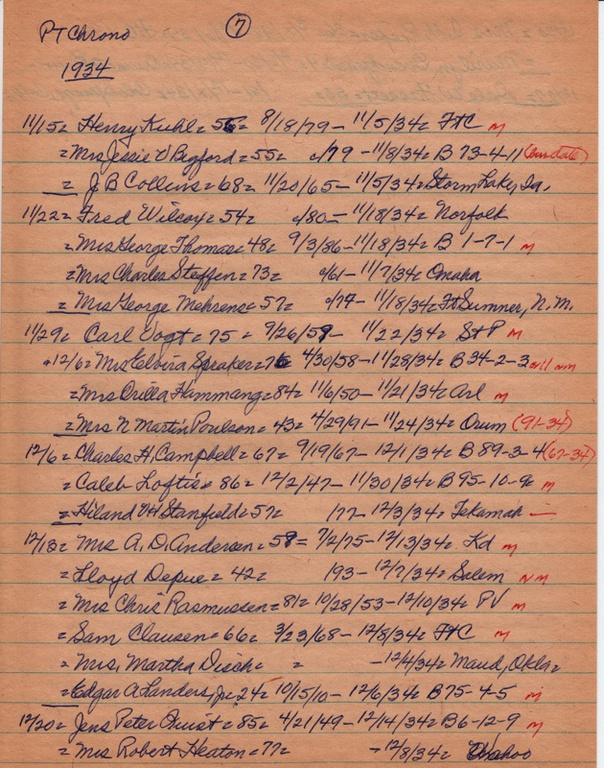 PT Chrono ⑦
1934
11/15= Henry Kuhl= 56= 8/18/79- 11/5/34= FtC m
=Mrs Jessie O Begford=55= c/79 - 11/8/34= B 73-4-11 (our date)
= J B Collins=68= 11/20/65- 11/5/34=Storm Lake, Ia.
11/22= Fred Wilcox=54= c/80- 11/18/34= Norfolk
=Mrs George Thomas=48= 9/3/86-11/18/34= B 1-7-1 m
=Mrs Charles Steffen=73= c/61- 11/7/34= Omaha
=Mrs George Mehrens=57= c/77- 11/18/34=Ft Sumner, N.M.
11/29= Carl Vogt= 75= 9/26/59- 11/22/34= St P m
+12/6=Mrs Elvira Spraker=76 4/30/58-11/28/34=B 34-2-3 all nm
=Mrs Orilla Hammang=84= 11/6/50- 11/21/34= Arl m
=Mrs N Martin Poulson=43= 4/29/91- 11/24/34= Orum (91-34)
12/6= Charles H. Campbell=67= 9/19/67- 12/1/34= B 89-3-4 (67-34)
=Caleb Loftis= 86= 12/2/47- 11/30/34= B 95-10-9= m
=Hiland VH Stanfield=57= /77- 12/3/34= Tekamah —
12/13= Mrs A. D. Andersen=59= 7/2/75-12/13/34= Kd m
=Lloyd Depue= 42= /93- 12/7/34= Salem nm
=Mrs Chris Rasmussen=81= 10/28/53-12/10/34= PV m
=Sam Clausen=66= 3/23/68- 12/8/34= FtC m
=Mrs. Martha Disch= = -12/4/34= Maud, Okla=
=Edgar A Landers, Jr=24= 10/15/10- 12/6/34= B 75-4-5 m
12/20= Jens Peter Quist=85= 4/21/49-12/14/34= B 6-12-9 m
=Mrs Robert Heaton=77= -12/8/34= Wahoo